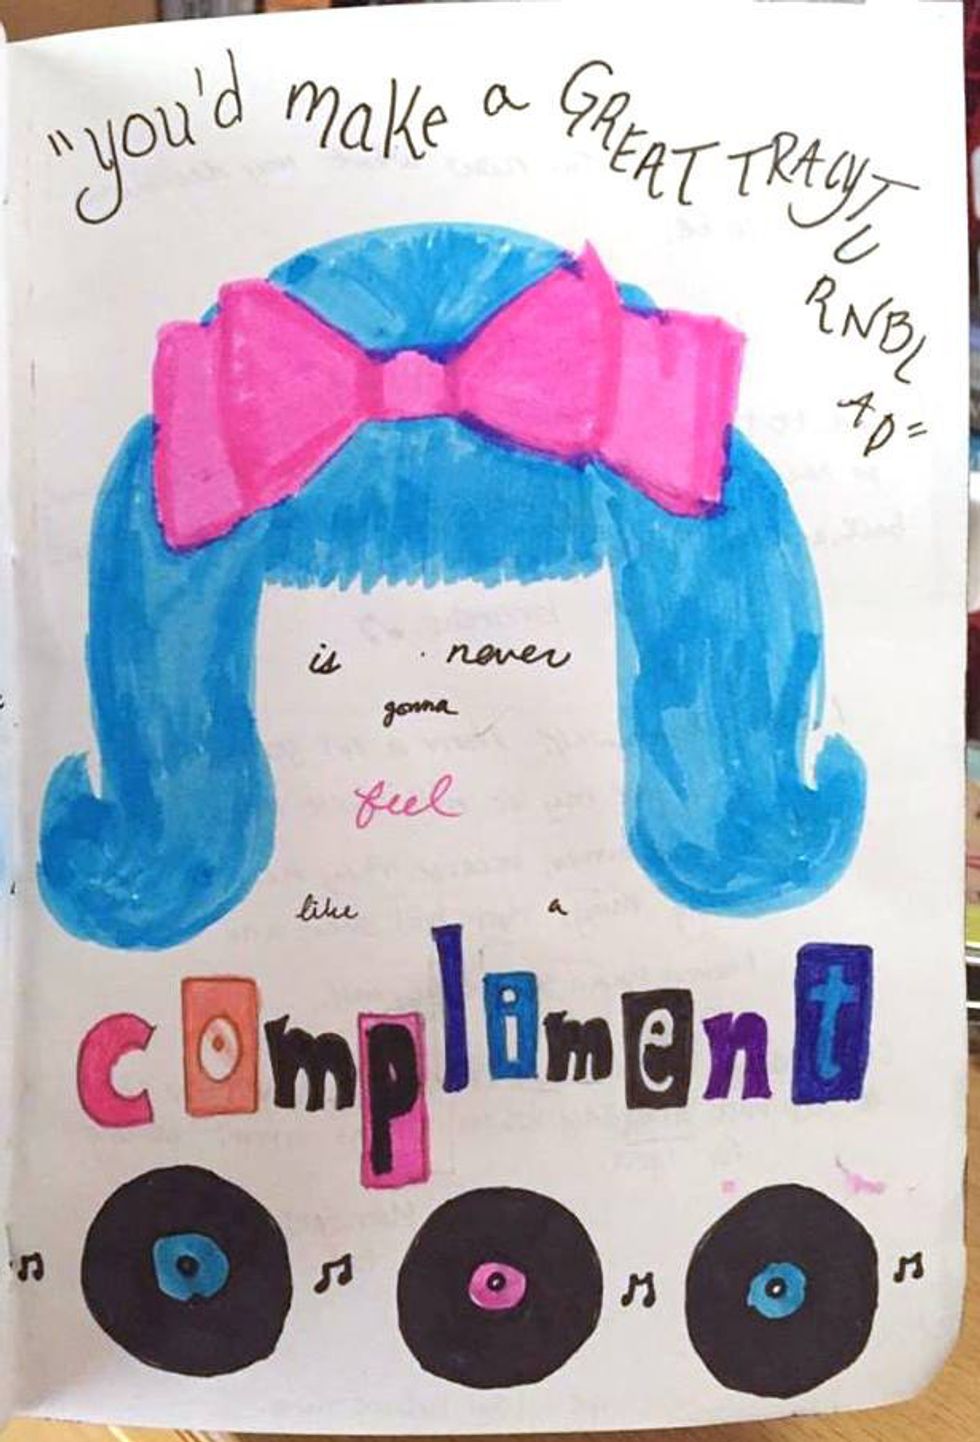 "you'd make a GREAT TRACY TURNBLAD=
is never
gonna
feel
like a
compliment